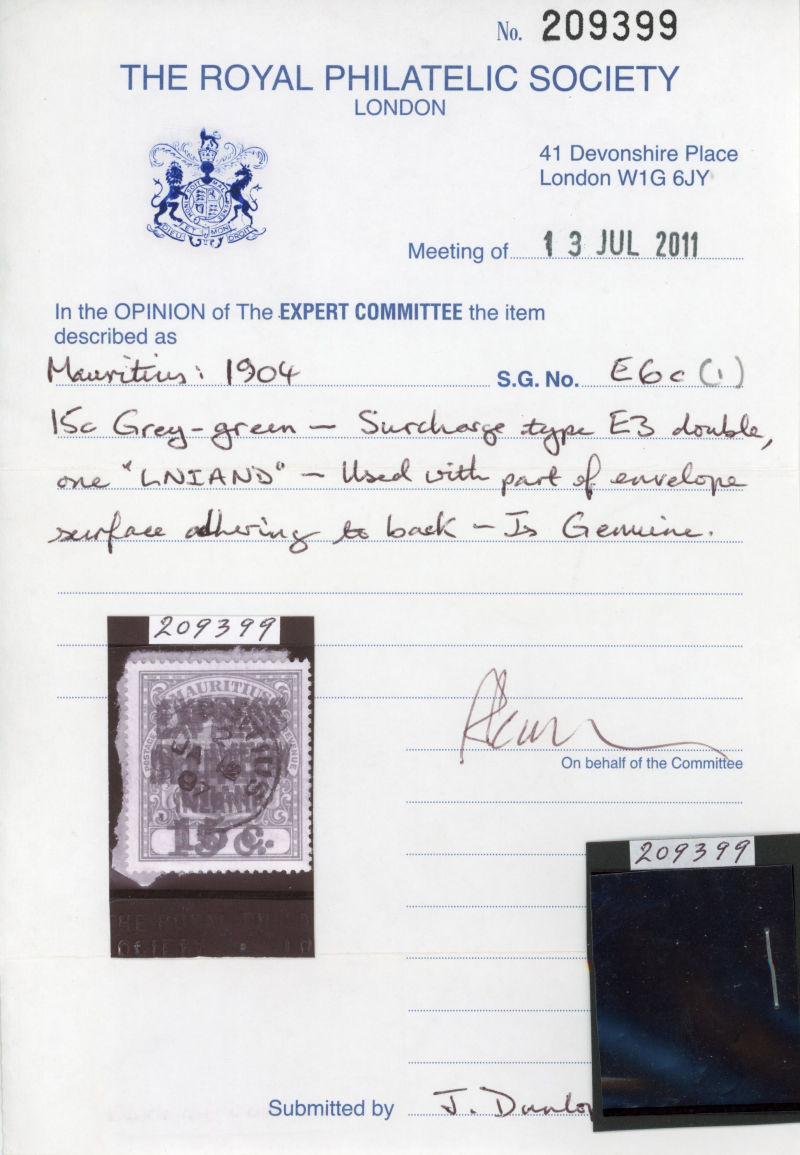 No. 209399
THE ROYAL PHILATELIC SOCIETY
LONDON
41 Devonshire Place
London W1G 6JY
Meeting of 13 JUL 2011
In the OPINION of The EXPERT COMMITTEE the item
described as
Mauritius: 1904 S.G. No. E6c (1)
15c Grey-green – Surcharge type E3 double,
one "LNIAND" – Used with part of envelope
surface adhering to back – Is Genuine.
209399
MAURITIUS
POSTAGE
REVENUE
EXPRESS
15 c.
THE ROYAL
SOCIETY
On behalf of the Committee
209399
Submitted by J. Dunlop